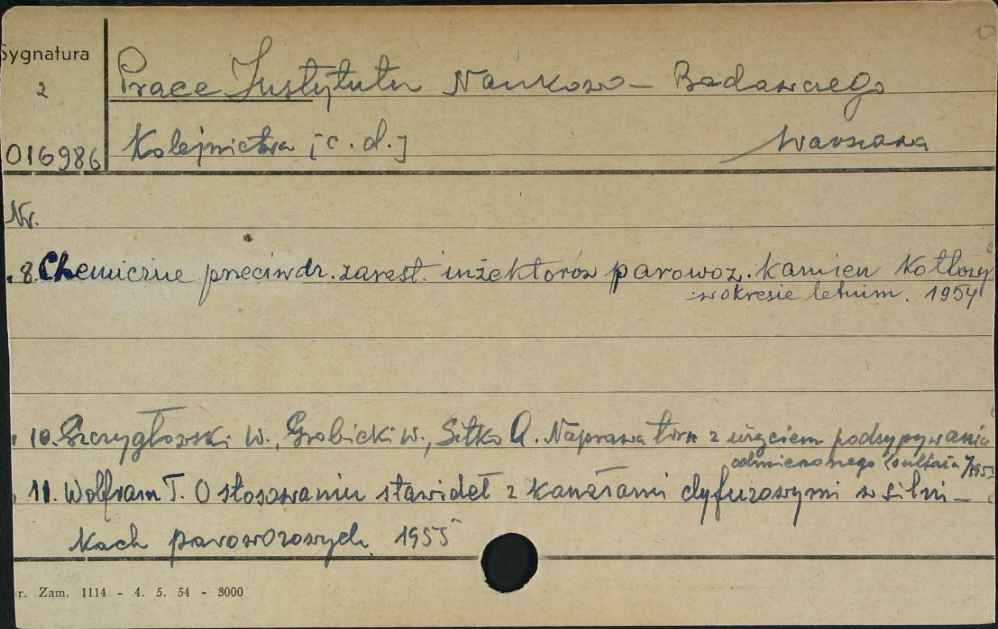 Sygnatura
2
016986
Prace Instytutu Naukowo - Badawczego
Kolejnictwa [c. d.] Warszawa
Nr.
8. Chemiczne przeciwdz. zarast. inżektorów parowoz. kamien kotłowy
w okresie letnim. 1954
10. Szczygłowski W., Grobicki W., Sitko A. Naprawa toru z użyciem podsypywania
odmierzonego 1955
11. Wolfram T. O stosowaniu stawideł z kanałami dyfuzowymi w silni-
kach parowozowych 1955
r. Zam. 1114 - 4. 5. 54 - 8000